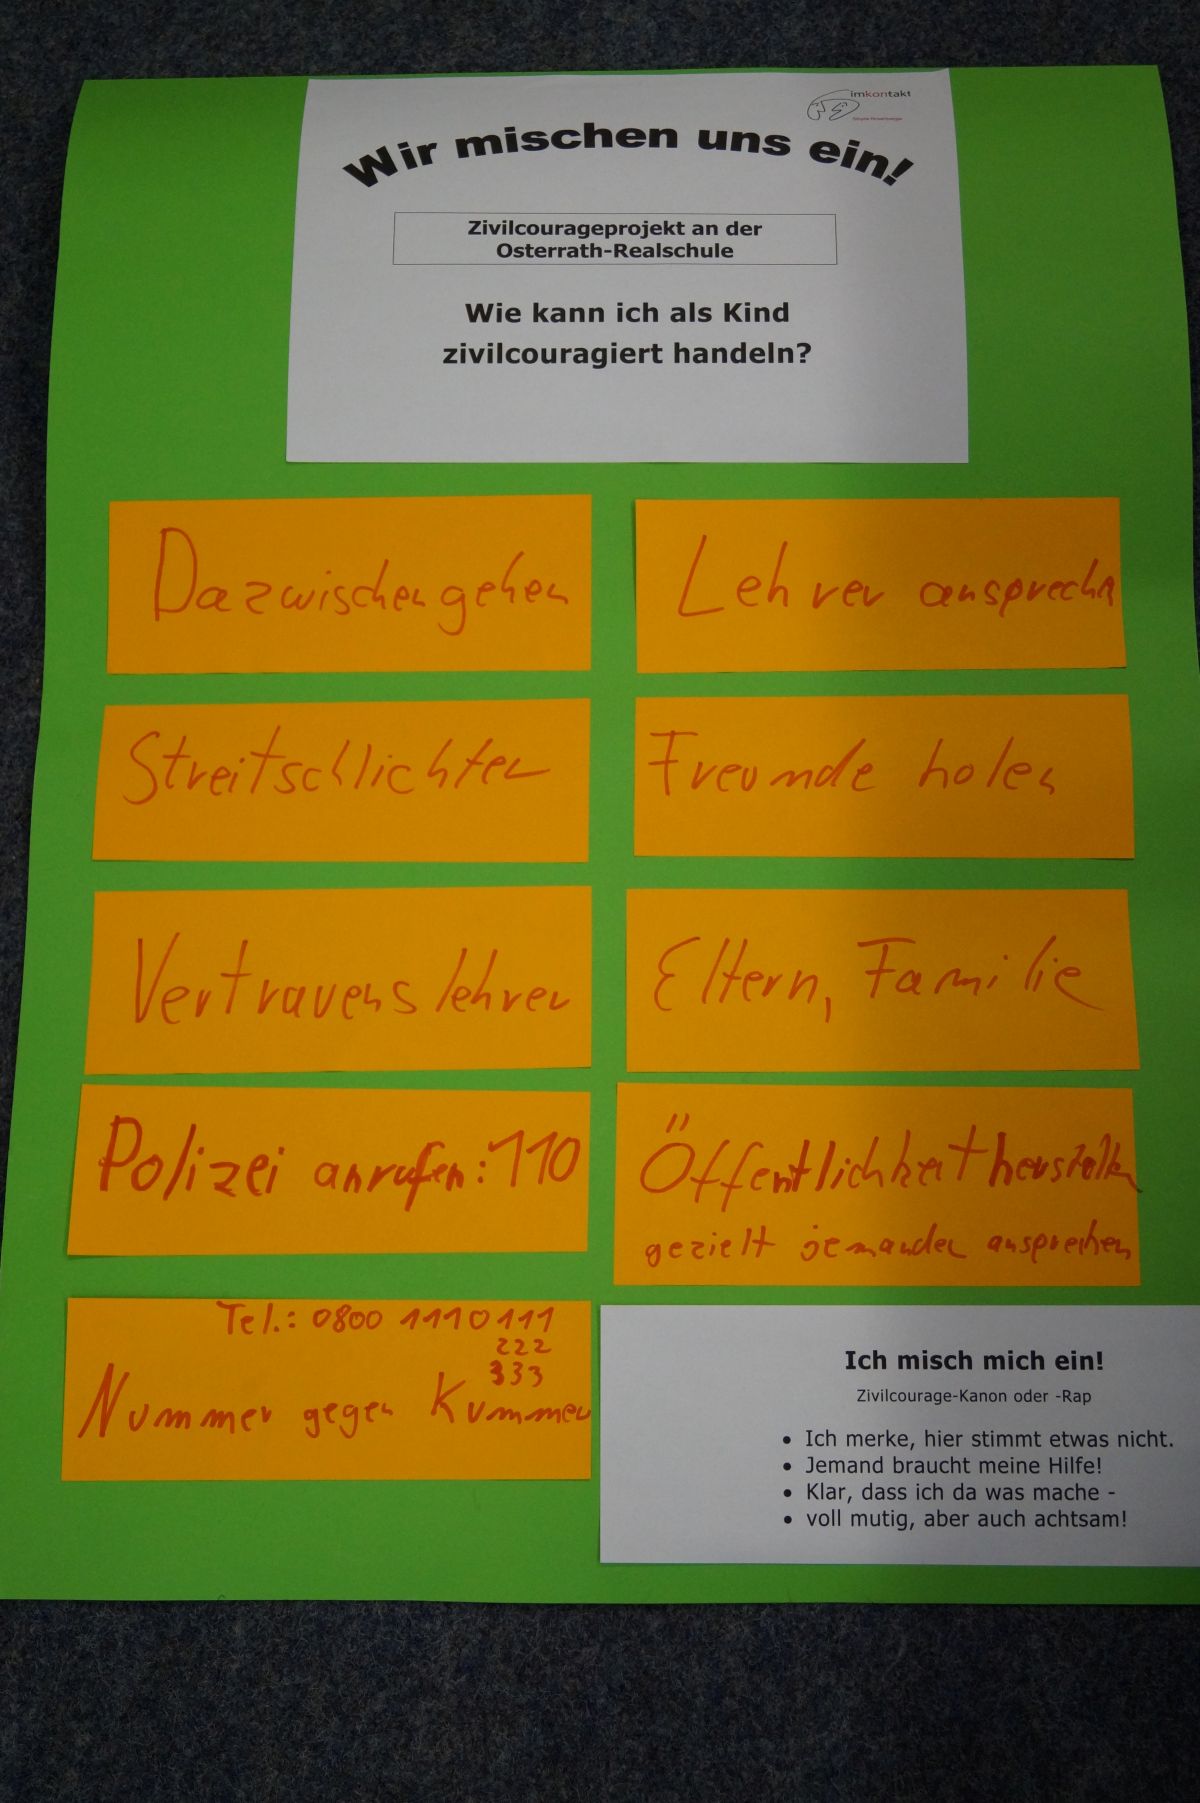 imkontakt
Wir mischen uns ein!
Zivilcourageprojekt an der
Osterrath-Realschule
Wie kann ich als Kind
zivilcouragiert handeln?
Dazwischengehen
Lehrer ansprechn
Streitschlichter
Freunde holen
Vertrauenslehrer
Eltern, Familie
Polizei anrufen: 110
Öffentlichkeit herstellen
gezielt jemanden ansprechen
Tel.: 0800 1110111
222
333
Nummer gegen Kummer
Ich misch mich ein!
Zivilcourage-Kanon oder -Rap
• Ich merke, hier stimmt etwas nicht.
• Jemand braucht meine Hilfe!
• Klar, dass ich da was mache -
• voll mutig, aber auch achtsam!